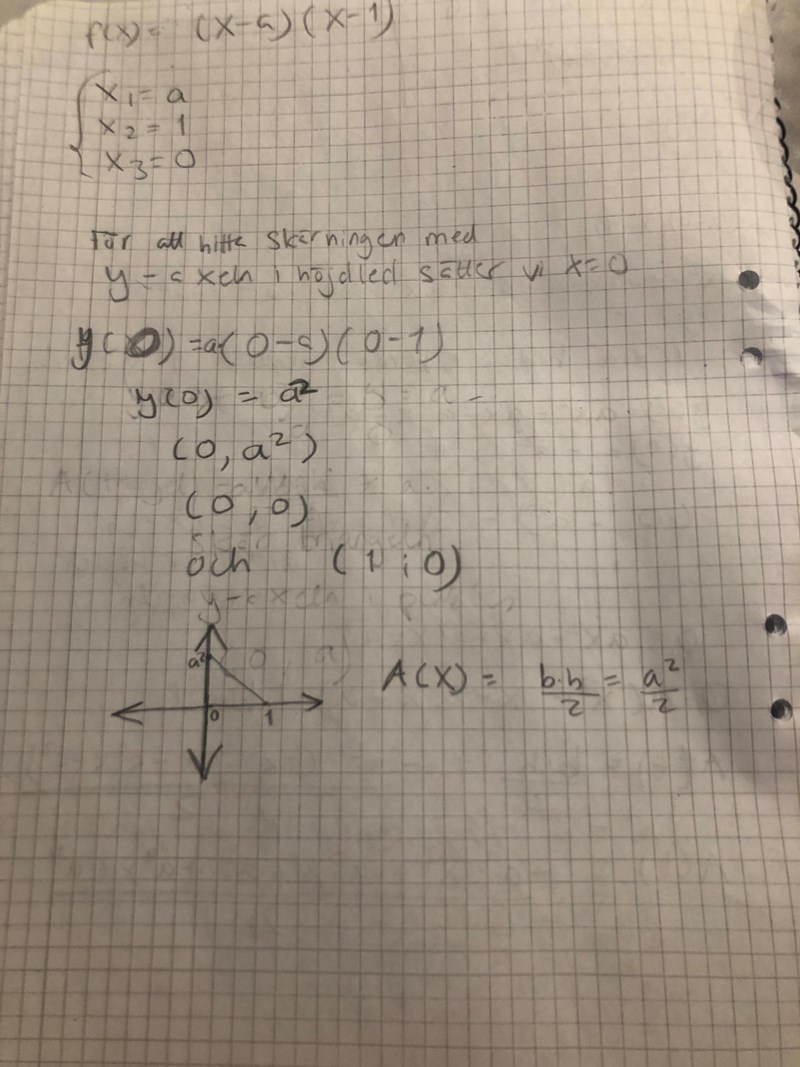 f(x) = (x-a)(x-1)
x₁ = a
x₂ = 1
x₃ = 0
För att hitta skärningen med
y-axeln i höjdled sätter vi x=0
y(0) = a(0-a)(0-1)
y(0) = a²
(0, a²)
(0, 0)
och (1 ; 0)
a²
0 1
A(x) = b·h/2 = a²/2